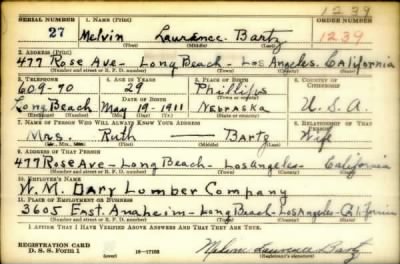 1239
SERIAL NUMBER 1. NAME (Print) ORDER NUMBER
27 Melvin Laurance Bartz 1239
(First) (Middle) (Last)
2. ADDRESS (Print)
477 Rose Ave - Long Beach - Los Angeles. California
(Number and street or R. F. D. number) (Town) (County) (State)
3. TELEPHONE 4. AGE IN YEARS 5. PLACE OF BIRTH 6. COUNTRY OF CITIZENSHIP
609-70 29 Phillips
DATE OF BIRTH
Long Beach May-19-1911 Nebraska U.S.A.
(Exchange) (Number) (Mo.) (Day) (Yr.) (State or country)
7. NAME OF PERSON WHO WILL ALWAYS KNOW YOUR ADDRESS 8. RELATIONSHIP OF THAT PERSON
Mrs. Ruth — Bartz Wife
(Mr., Mrs., Miss) (First) (Middle) (Last)
9. ADDRESS OF THAT PERSON
477 Rose Ave - Long Beach - Los Angeles - California
(Number and street or R. F. D. number) (Town) (County) (State)
10. EMPLOYER'S NAME
W. M. Dary Lumber Company
11. PLACE OF EMPLOYMENT OR BUSINESS
3605 East Anaheim - Long Beach - Los Angeles - California
(Number and street or R. F. D. number) (Town) (County) (State)
I AFFIRM THAT I HAVE VERIFIED ABOVE ANSWERS AND THAT THEY ARE TRUE.
REGISTRATION CARD
D. S. S. Form 1 16-17105 Melvin Laurance Bartz
(Registrant's signature)